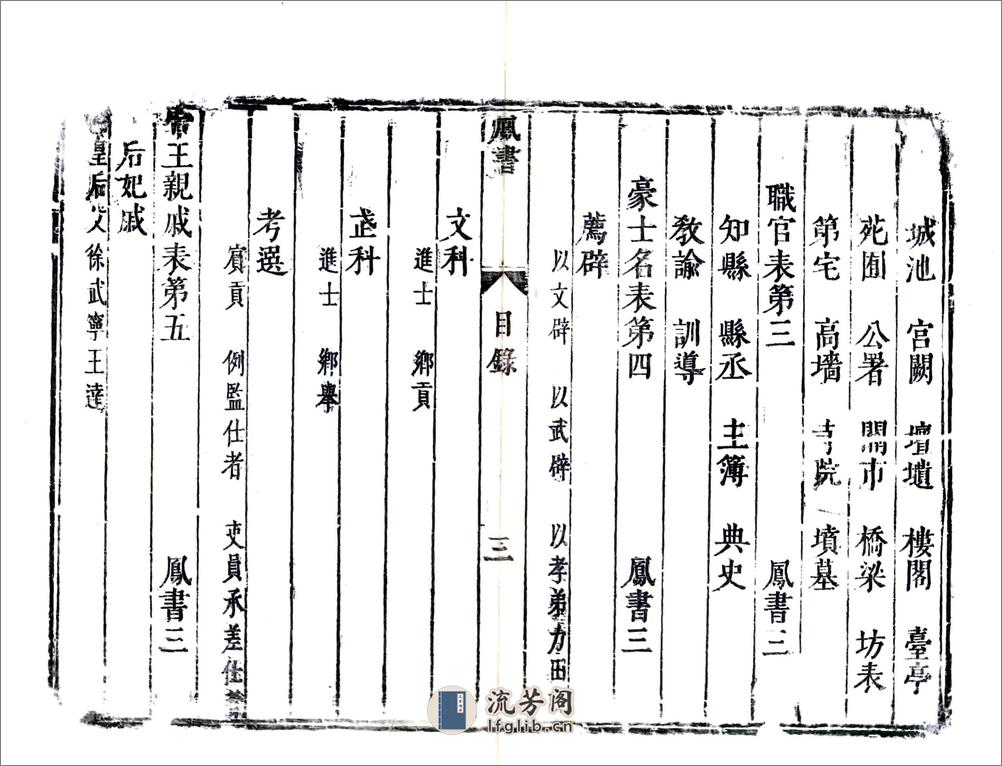 城池 宮闕 壇壝 樓閣 臺亭
苑囿 公署 關市 橋梁 坊表
第宅 高墻 寺院 墳墓
職官表第三 鳳書三
知縣 縣丞 主簿 典史
敎諭 訓導
豪士名表第四 鳳書三
薦辟
以文辟 以武辟 以孝弟力田
鳳書 目錄 三
文科
進士 鄉貢
武科
進士 鄉擧
考選
賔貢 例監仕者 吏員承差仕者
帝王親戚表第五 鳳書三
后妃戚
皇后父徐武寧王達
流芳阁
lfglib.cn